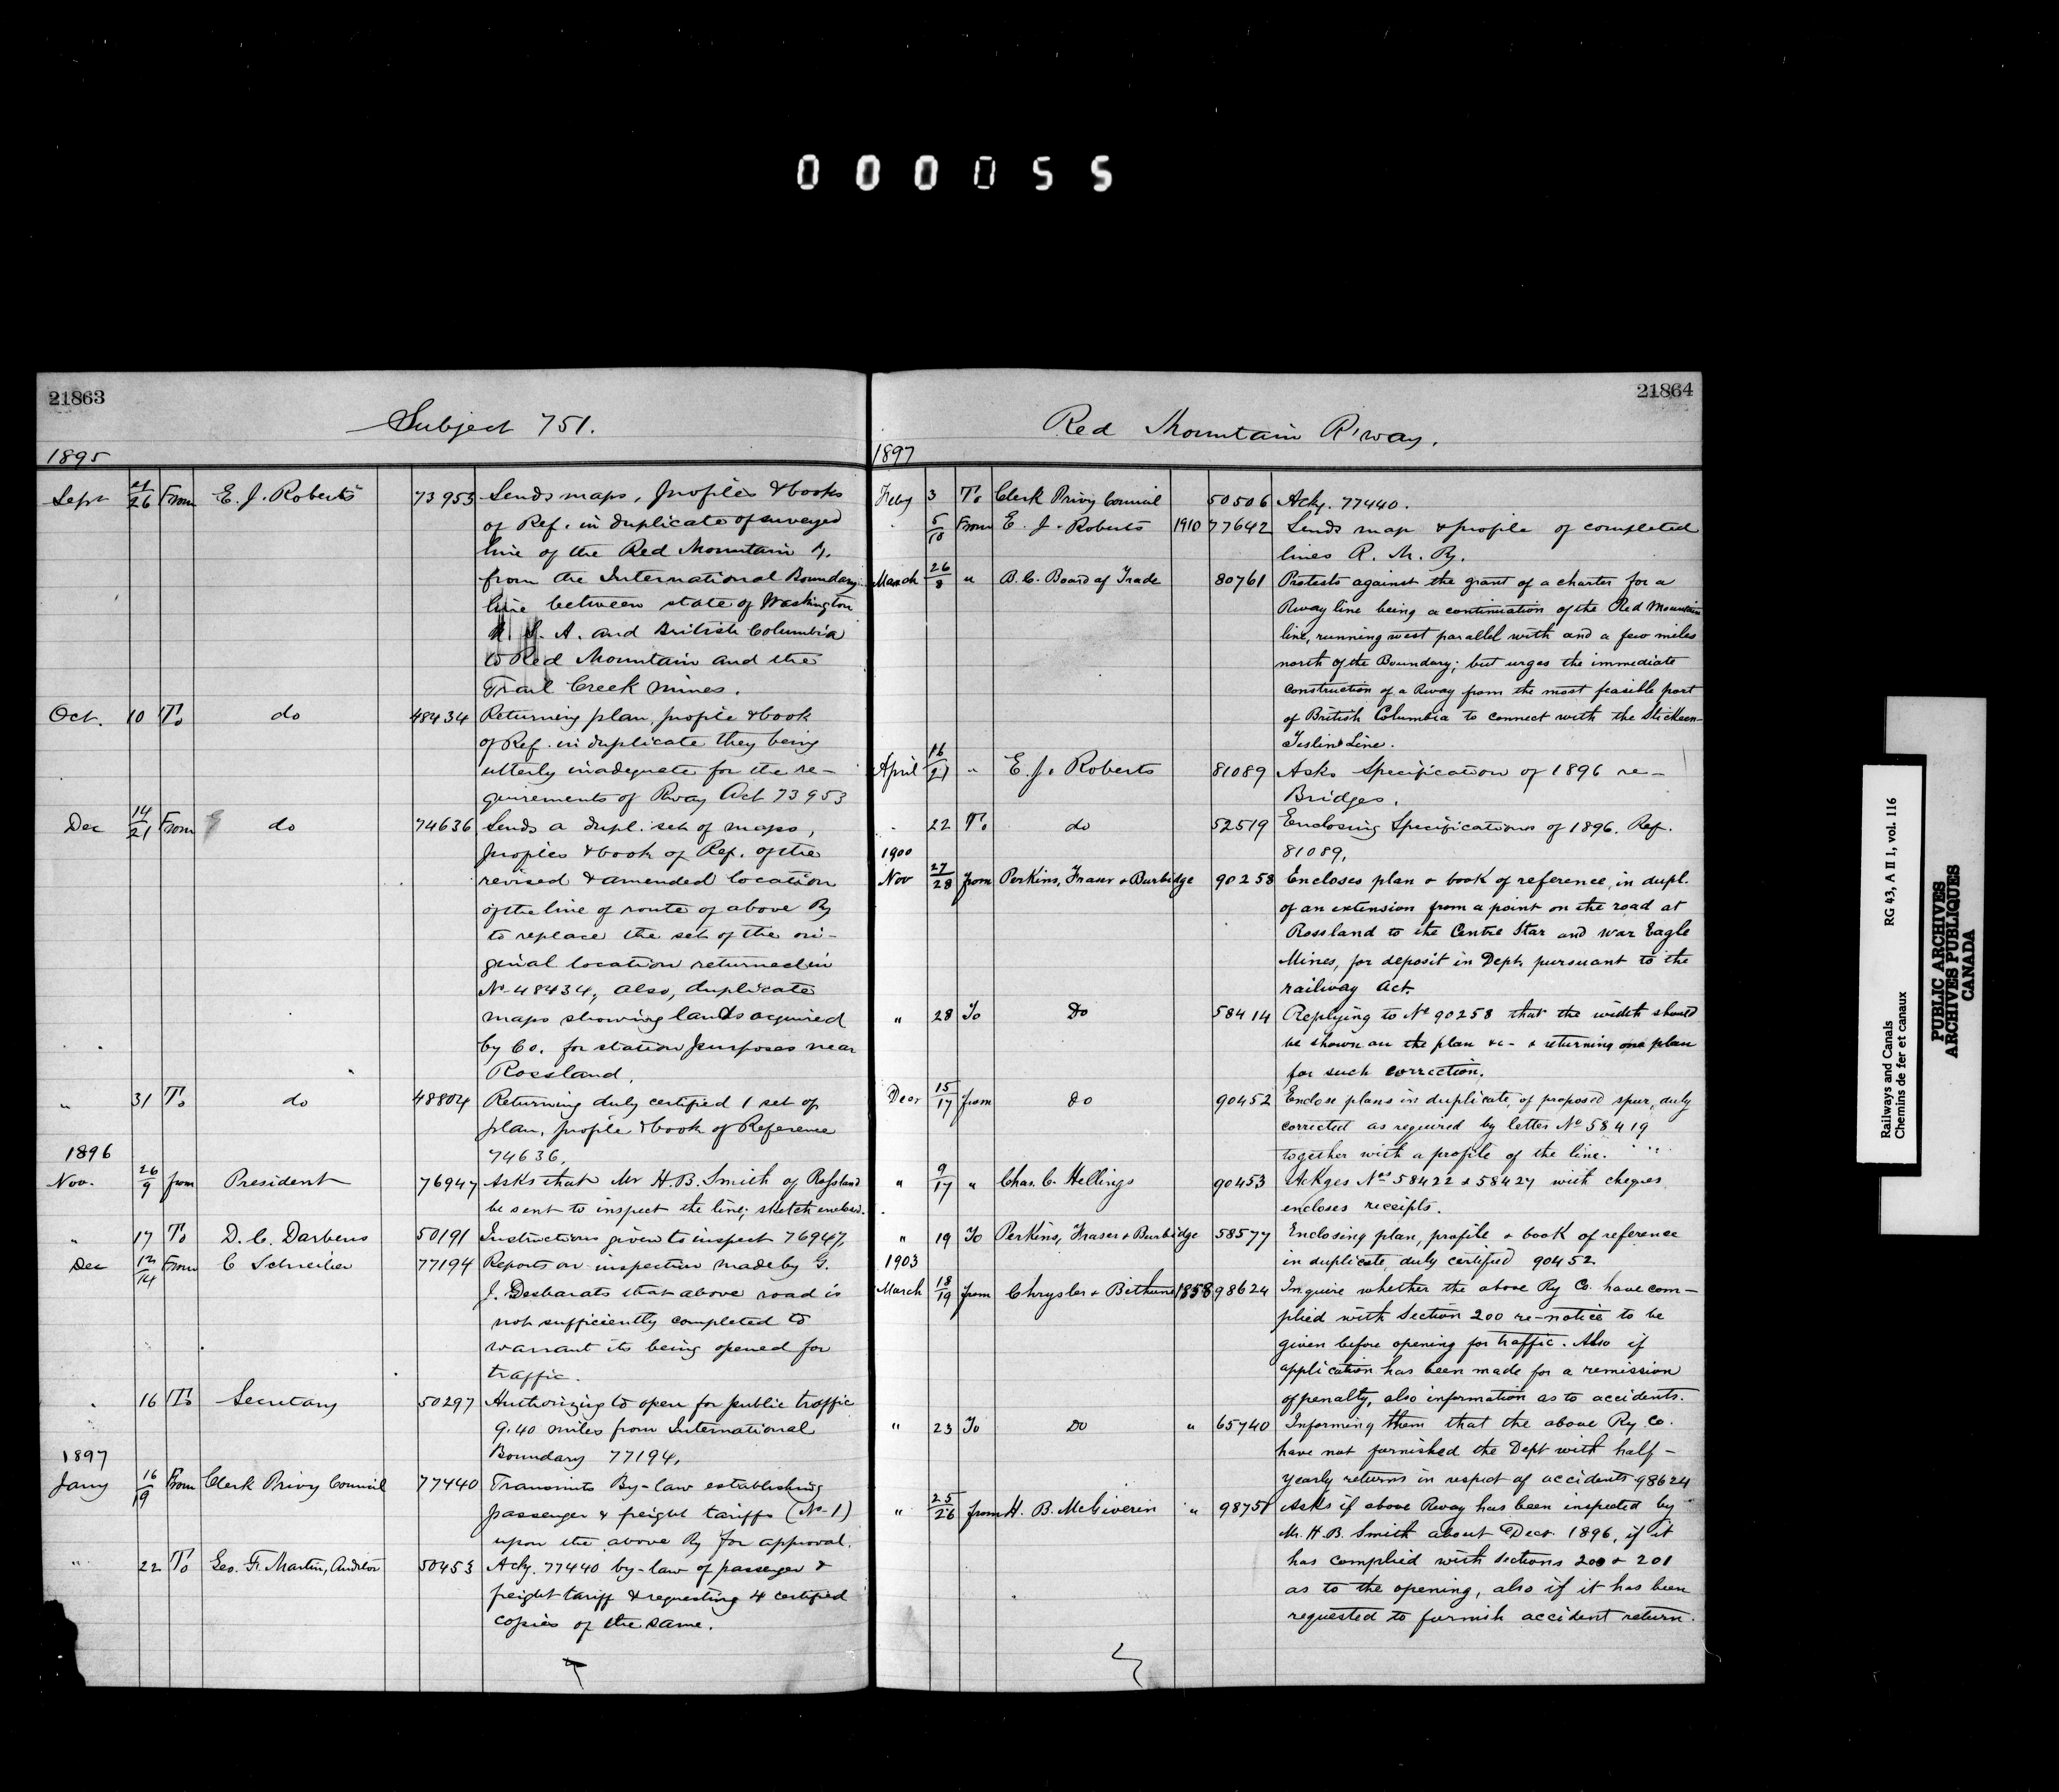 000055
21863
Subject 751.
1895
Sept 21/26 From E. J. Roberts 73953 Sends maps, profiles & books
of Ref. in duplicate of surveyed
line of the Red Mountain Ry.
from the International Boundary
line between state of Washington
U. S. A. and British Columbia
to Red Mountain and the
Trail Creek Mines.
Oct. 10 To do 48434 Returning plan, profile & book
of Ref. in duplicate they being
utterly inadequate for the re-
quirements of Rway Act 73953
Dec 14/21 From do 74636 Sends a dupl. set of maps,
profiles & book of Ref. of the
revised & amended location
of the line of route of above Ry
to replace the set of the ori-
ginal location returned in
No 48434, also, duplicate
maps showing lands acquired
by Co. for station purposes near
Rossland.
" 31 To do 48804 Returning duly certified 1 set of
plan, profile & book of Reference
74636.
1896
Nov. 26/9 from President 76947 Asks that Mr H. B. Smith of Rossland
be sent to inspect the line; sketch enclosed.
" 17 To D. C. 50191 Instructions given to inspect 76947,
Dec 12/14 From C Schreiber 77194 Reports on inspection made by G.
J. Desbarats that above road is
not sufficiently completed to
warrant its being opened for
traffic.
" 16 To Secretary 50297 Authorizing to open for public traffic
9.40 miles from International
Boundary 77194.
1897
Jany 16/19 From Clerk Privy Council 77440 Transmits By-law establishing
passenger & freight tariffs (No 1)
upon the above Ry for approval.
" 22 To Geo. F. Martin, Auditor 50453 Ack'g. 77440 by-law of passenger &
freight tariff & requesting 4 certified
copies of the same.
21864
Red Mountain R'way.
1897
Feby 3 To Clerk Privy Council 50506 Ackg. 77440.
" 5/10 From E. J. Roberts 1910 77642 Sends map & profile of completed
lines R. M. Ry.
March 26/8 " B. C. Board of Trade 80761 Protests against the grant of a charter for a
Rway line being a continuation of the Red Mountain
line, running west parallel with and a few miles
north of the Boundary; but urges the immediate
construction of a Rway from the most feasible port
of British Columbia to connect with the Stickeen-
Teslin Line.
April 16/21 " E. J. Roberts 81089 Asks Specification of 1896 re-
Bridges.
" 22 To do 52519 Enclosing Specifications of 1896. Ref.
81089.
1900
Nov 27/28 from Perkins, Fraser & Burbidge 90258 Encloses plan & book of reference, in dupl.
of an extension from a point on the road at
Rossland to the Centre Star and War Eagle
Mines, for deposit in Dept. pursuant to the
railway Act.
" 28 To Do 58414 Replying to No 90258 that the width should
be shown on the plan &c - & returning one plan
for such correction.
Decr 15/17 from Do 90452 Enclose plans in duplicate, of proposed spur, duly
corrected as required by letter No 58419
together with a profile of the line.
" 9/17 " Chas. C. Hellings 90453 Ackges Nos 58422 & 58427 with cheques,
encloses receipts.
" 19 To Perkins, Fraser & Burbidge 58577 Enclosing plan, profile & book of reference
in duplicate, duly certified 90452
1903
March 18/19 from Chrysler & Bethune 1858 98624 Inquire whether the above Ry Co. have com-
plied with Section 200 re-notice to be
given before opening for traffic. Also if
application has been made for a remission
of penalty, also information as to accidents.
" 23 To Do " 65740 Informing them that the above Ry Co.
have not furnished the Dept with half-
yearly returns in respect of accidents 98624
" 25/26 from H. B. McGiverin " 98751 Asks if above Rway has been inspected by
Mr. H. B. Smith about Decr. 1896, if it
has complied with sections 200 & 201
as to the opening, also if it has been
requested to furnish accident return.
Railways and Canals RG 43, A II 1, vol. 116
Chemins de fer et canaux
PUBLIC ARCHIVES
ARCHIVES PUBLIQUES
CANADA